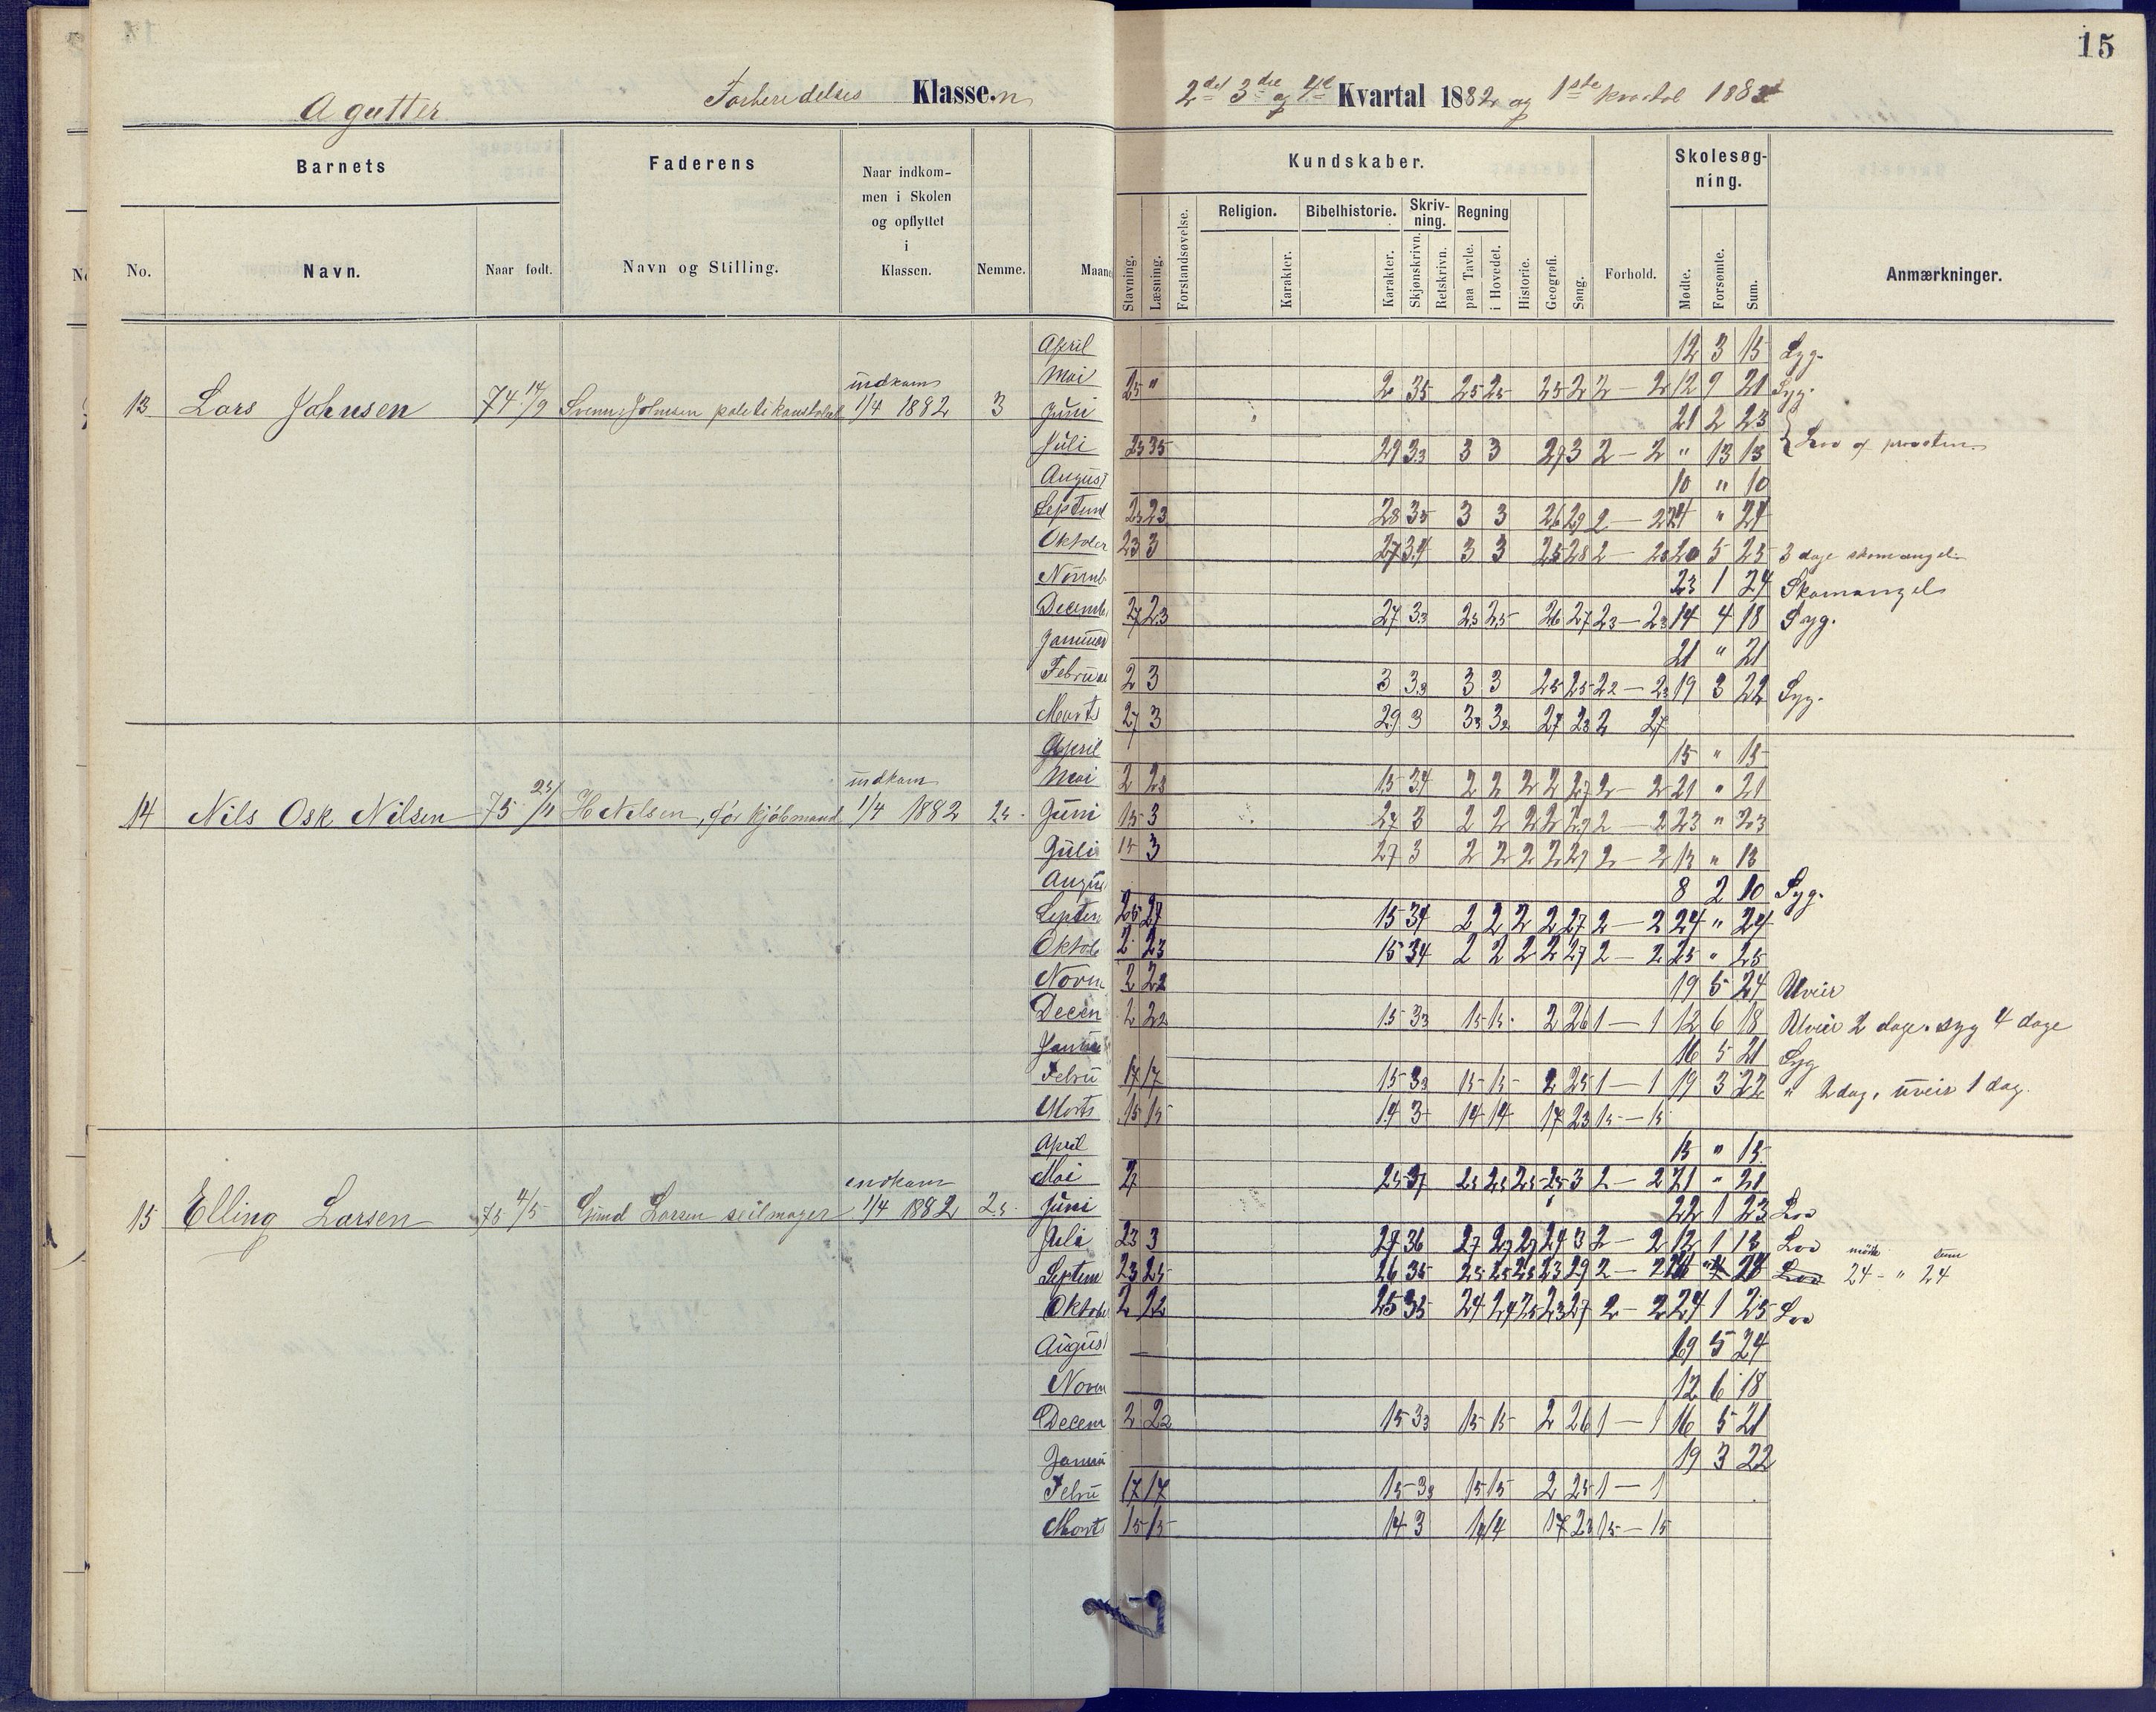 15
A gutter Forberedelses Klasse.n 2det 3die og 4de Kvartal 1882 og 1ste kvartal 188
Barnets Faderens Naar indkommen i Skolen og opflyttet i Klassen. Nemme. Kundskaber. Skolesøgning.
No. Navn. Naar født. Navn og Stilling. Stavning. Læsning. Forstandsøvelse. Religion. Karakter. Bibelhistorie. Karakter. Skrivning. Skjønskrivn. Retskrivn. Regning paa Tavle. i Hovedet. Historie. Geografi. Sang. Forhold. Mødte. Forsømte. Sum. Anmærkninger.
April 12 3 15 Syg.
Mai 25 " 2 35 25 25 25 22 2 — 2 12 9 21 Syg.
13 Lars Johnsen 74 14/9 Johnsen politikonstabel indkom 1/4 1882 3 Juni 21 2 23
Juli 25 35 29 33 3 3 27 3 2 — 2 " 13 13 Lov af provsten
August 10 " 10
Septemb 23 23 28 35 3 3 26 29 2 — 2 24 " 24
Oktober 23 3 27 34 3 3 25 28 2 — 23 20 5 25 3 dage skomangel
Novemb 23 1 24 Skomangel
Decemb 27 23 27 33 25 25 26 27 23 — 23 14 4 18 Syg.
Januar 21 " 21
Februar 2 3 3 33 3 3 25 25 22 — 23 19 3 22 Syg.
Marts 27 3 29 3 33 32 27 23 2 27
April 15 " 15
Mai 2 23 15 34 2 2 2 2 27 2 — 2 21 " 21
14 Nils Osk Nilsen 75 23/11 H Nilsen, før kjøbmand indkom 1/4 1882 25 Juni 15 3 27 3 2 2 2 2 27 2 — 2 23 " 23
Juli 15 3 27 3 2 2 2 2 27 2 — 2 13 " 13
Augus 8 2 10 Syg.
Septem 25 27 15 34 2 2 2 2 27 2 — 2 24 " 24
Oktob 2 23 15 34 2 2 2 2 27 2 — 2 25 " 25
Novm 2 22 19 5 24 Uveir
Decem 2 22 15 33 15 15 2 26 1 — 1 12 6 18 Uveir 2 dage. syg 4 dage
Januar 16 5 21 Syg
Febru 17 17 15 33 15 15 2 25 1 — 1 19 3 22 " 2 dag, uveir 1 dag.
Marts 15 15 14 3 14 14 17 23 15 — 15
April 15 " 15
Mai 2 25 37 25 25 25 25 3 2 — 2 21 " 21
15 Elling Larsen 75 4/5 Gund Larsen seilmager indkom 1/4 1882 25 Juni 22 1 23 Lov
Juli 23 3 27 36 27 27 27 24 3 2 — 2 12 1 13 Lov
Septem 23 25 26 35 25 25 25 23 29 2 — 2 24 Lov mødt 24 - " sum 24
Oktobe 2 22 25 35 24 24 25 23 27 2 — 2 24 1 25 Lov
August 19 5 24
Novm 12 6 18
Decem 2 22 15 33 15 15 2 26 1 — 1 16 5 21
Janua 19 3 22
Febru 17 17 15 33 15 15 2 25 1 — 1
Marts 15 15 14 3 14 14 17 23 15 — 15